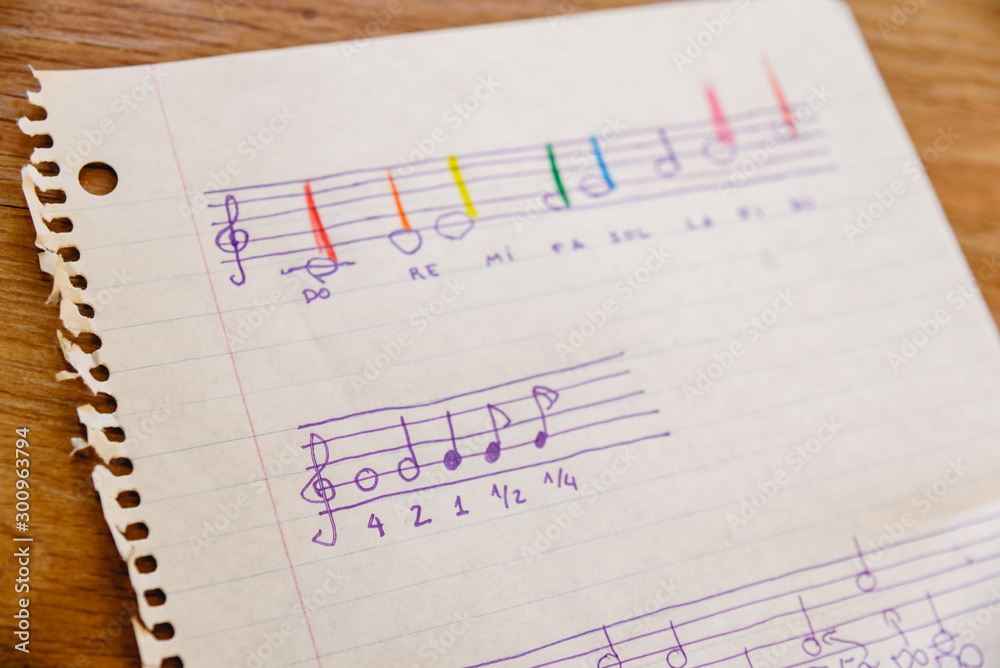 DO RE MI FA SOL LA SI DO
4 2 1 1/2 1/4
Adobe Stock | #300963794